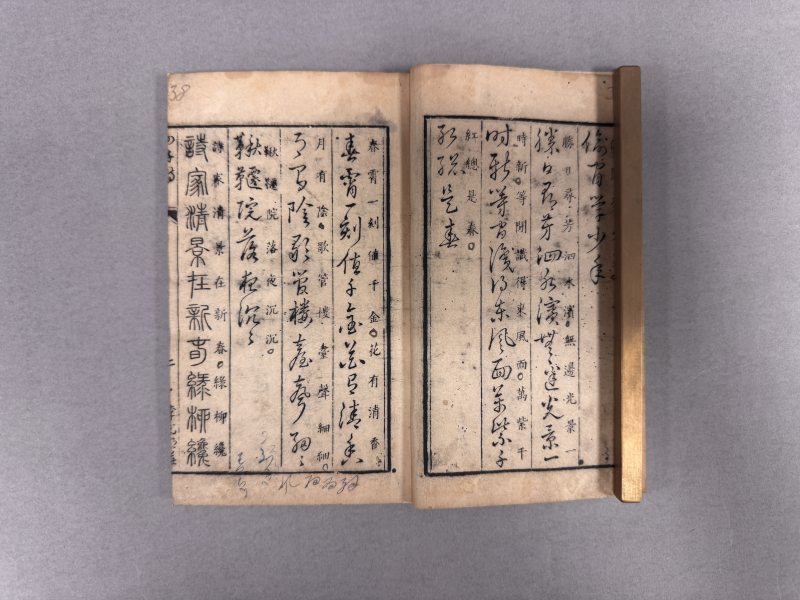 偷閒學少年
勝日尋芳泗水濱。無邊光景一
勝日尋芳泗水濱無邊光景一
時新。等閒識得東風面。萬紫千
時新等閒識得東風面萬紫千
紅總是春。
紅總是春
春宵一刻值千金。花有清香
春宵一刻值千金花有清香
月有陰。歌管樓臺聲細細。
月有陰歌管樓臺聲細細
鞦韆院落夜沉沉。
鞦韆院落夜沉沉
詩家清景在新春。綠柳纔
詩家清景在新春綠柳纔
38